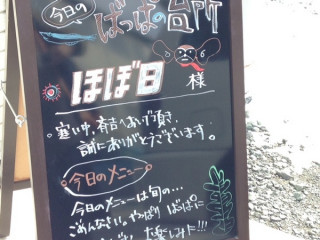 今日の
ばっばの台所
ほぼ日 様
寒い中、斉吉へおいで頂き、
誠にありがとうございます。
今日のメニュー
今日のメニューは旬の…
ごめんなさい。やっぱり ばっばに
楽しみに!!!